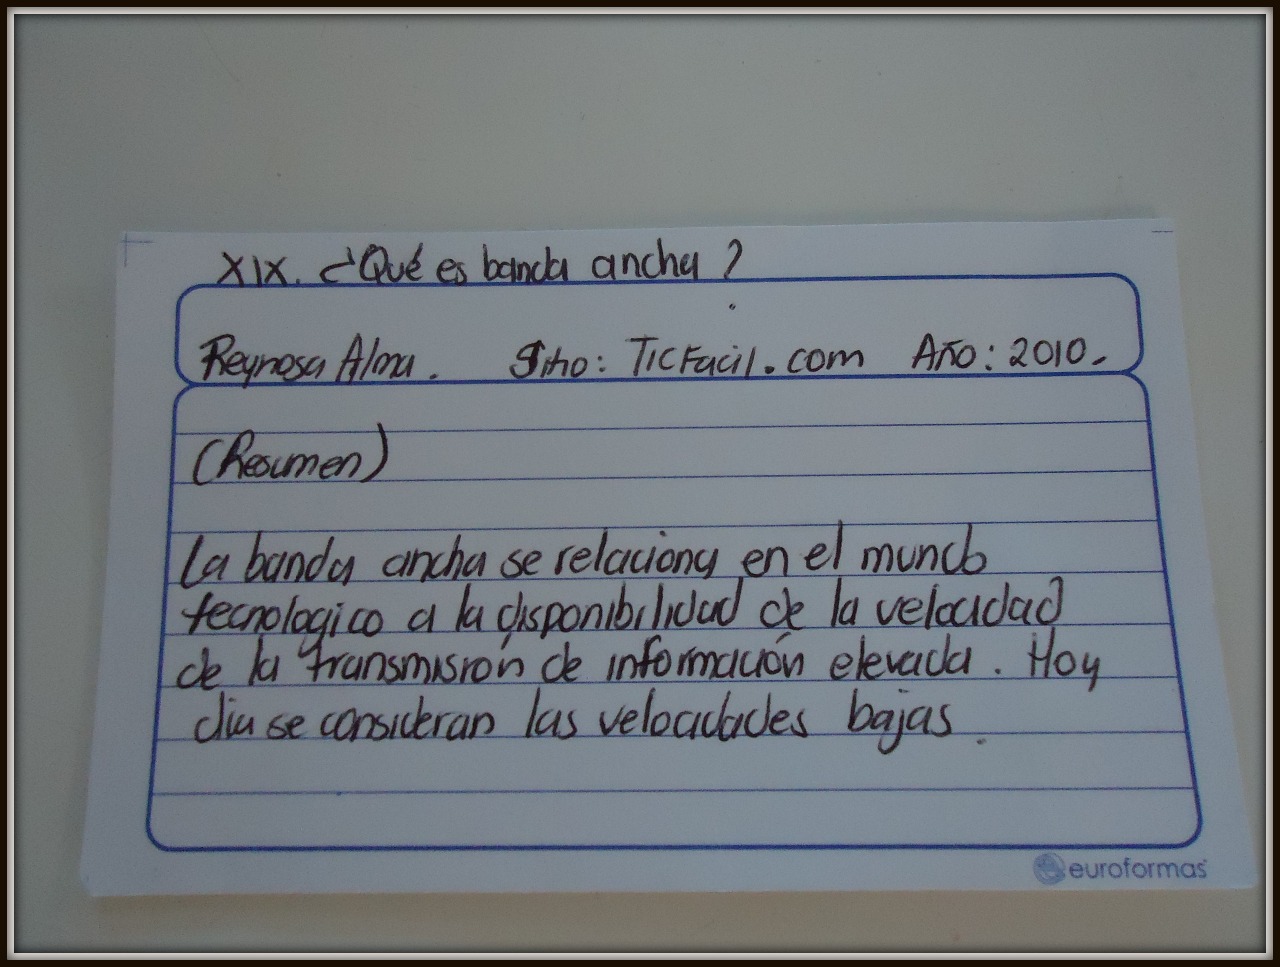 XIX. ¿Qué es banda ancha?
Reynosa Alma. Sitio: TICFacil.com Año: 2010.
(Resumen)
La banda ancha se relaciona en el mundo
tecnologico a la disponibilidad de la velocidad
de la transmisión de información elevada. Hoy
dia se consideran las velocidades bajas.
euroformas